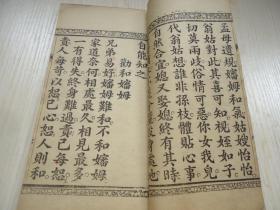 孟母遺規嬸姆和氣姑嫂怡怡
翁姑對此其喜可知視姪如子
切莫兩歧俗情可惡你女我兒
代翁姑想誰非孫枝體貼心事
自然合宜媳又娶媳終有其時
自能知之
勸和嬸姆
兄弟易好嬸姆難和不和嬸姆
家道奈何相處最久相見最多
一有得失終身難過責己每恕
責人每苛以恕己心恕人則和